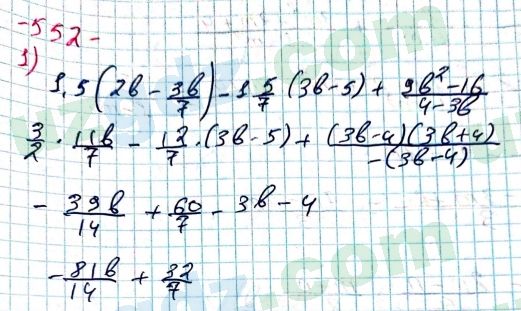 -552-
1)
1,5(2b - 3b/7) - 1 5/7 (3b-5) + (9b²-16)/(4-3b)
3/2 · 11b/7 - 12/7 · (3b-5) + (3b-4)(3b+4)/-(3b-4)
- 39b/14 + 60/7 - 3b - 4
- 81b/14 + 32/7